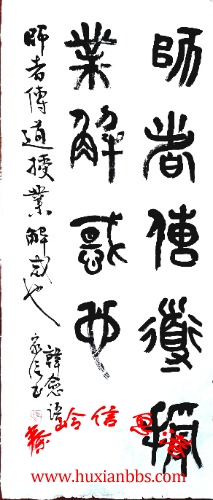 師者傳道授
業解惑也
師者傳道授業解惑也
韓愈語
www.huxianbbs.com